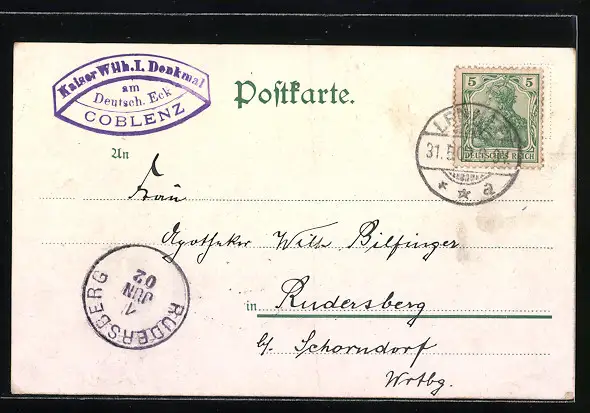 Kaiser Wilh. I. Denkmal
am
Deutsch. Eck
COBLENZ
Postkarte.
5 5
DEUTSCHES REICH
31.5
* * a
An
Frau
Apotheker Wilh. Bilfinger
in Rudersberg
b/ Schorndorf
Wrtbg.
RUDERSBERG
1
JUN
02